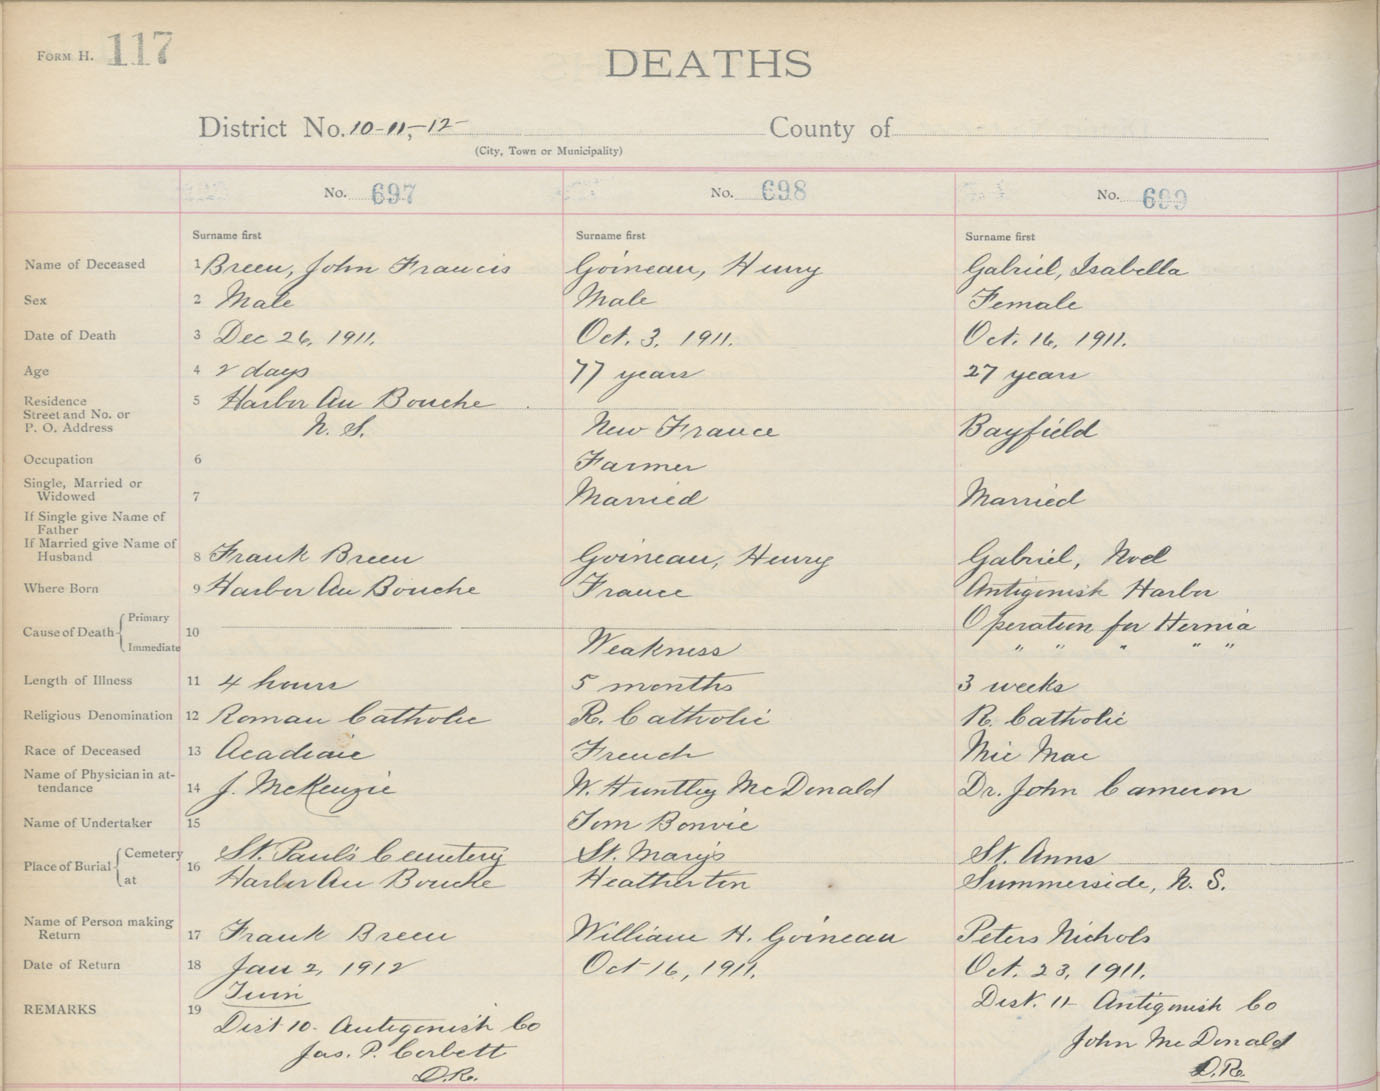 FORM H. 117
DEATHS
District No. 10-11,-12- County of
(City, Town or Municipality)
No. 697 No. 698 No. 699
Surname first Surname first Surname first
Name of Deceased 1 Breen, John Francis Goineau, Henry Gabriel, Isabella
Sex 2 Male Male Female
Date of Death 3 Dec 26, 1911. Oct. 3, 1911. Oct. 16, 1911.
Age 4 2 days 77 years 27 years
Residence 5 Harbor Au Bouche
Street and No. or
P. O. Address N. S. New France Bayfield
Occupation 6 Farmer
Single, Married or
Widowed 7 Married Married
If Single give Name of
Father
If Married give Name of
Husband 8 Frank Breen Goineau, Henry Gabriel, Noel
Where Born 9 Harbor Au Bouche France Antigonish Harbor
Cause of Death { Primary 10 Operation for Hernia
Immediate Weakness " " " " "
Length of Illness 11 4 hours 5 months 3 weeks
Religious Denomination 12 Roman Catholic R. Catholic R. Catholic
Race of Deceased 13 Acadiaic French Mic Mac
Name of Physician in at-
tendance 14 J. McKenzie W. Huntley McDonald Dr. John Cameron
Name of Undertaker 15 Tom Bonvie
Place of Burial { Cemetery 16 St. Paul's Cemetery St. Mary's St. Anns
at Harbor Au Bouche Heatherton Summerside, N. S.
Name of Person making
Return 17 Frank Breen William H. Goineau Peters Nichols
Date of Return 18 Jan 2, 1912 Oct 16, 1911. Oct. 23, 1911.
REMARKS 19 Twin Dist. 11- Antigonish Co
Dist 10- Antigonish Co John McDonald
Jas. P. Corbett D.R.
D.R.